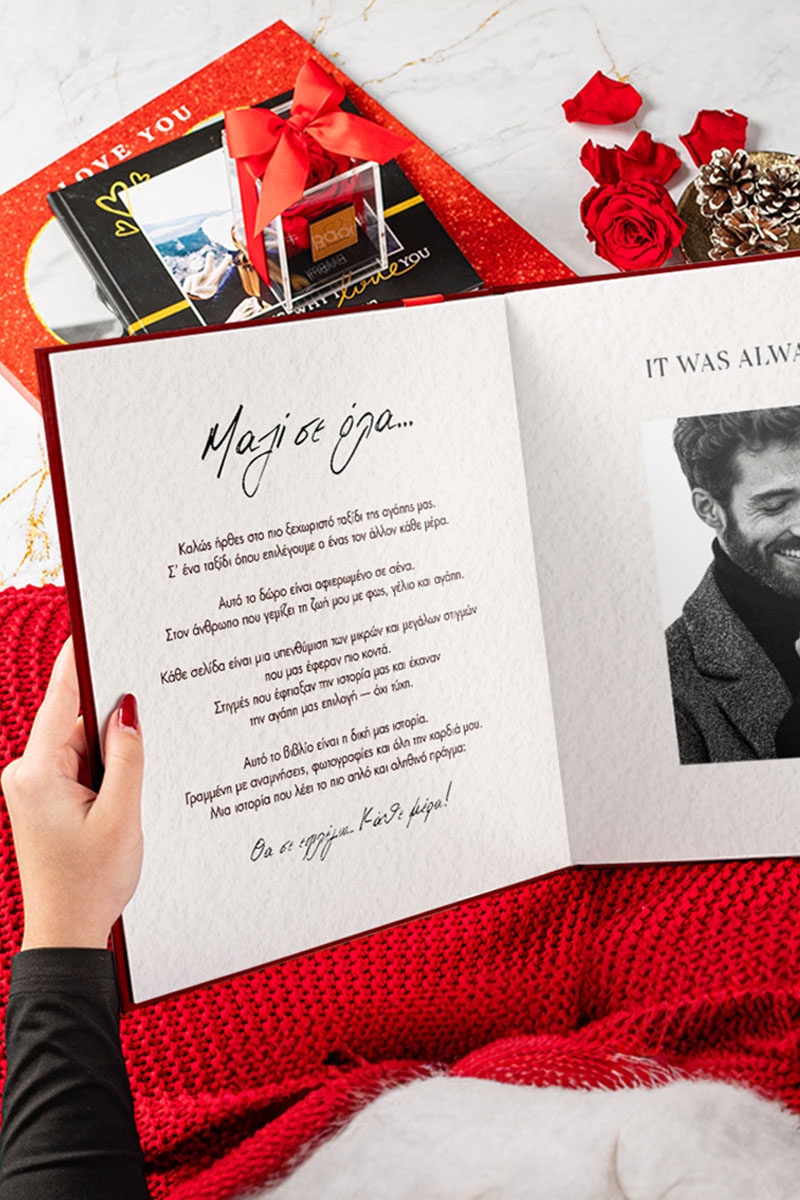 LOVE YOU
WHY I love YOU
Μαζί σε όλα...
Καλώς ήρθες στο πιο ξεχωριστό ταξίδι της αγάπης μας.
Σ' ένα ταξίδι όπου επιλέγουμε ο ένας τον άλλον κάθε μέρα.
Αυτό το δώρο είναι αφιερωμένο σε σένα.
Στον άνθρωπο που γεμίζει τη ζωή μου με φως, γέλιο και αγάπη.
Κάθε σελίδα είναι μια υπενθύμιση των μικρών και μεγάλων στιγμών
που μας έφεραν πιο κοντά.
Στιγμές που έφτιαξαν την ιστορία μας και έκαναν
την αγάπη μας επιλογή — όχι τύχη.
Αυτό το βιβλίο είναι η δική μας ιστορία.
Γραμμένη με αναμνήσεις, φωτογραφίες και όλη την καρδιά μου.
Μια ιστορία που λέει το πιο απλό και αληθινό πράγμα:
Θα σε επιλέγω... Κάθε μέρα!
IT WAS ALWA